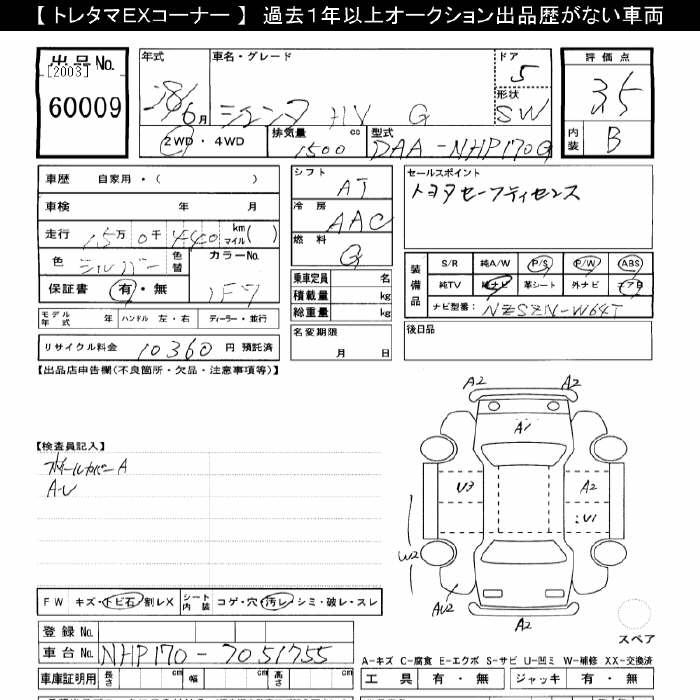 【 トレタマEXコーナー 】 過去１年以上オークション出品歴がない車両
出品No. [2003] 60009
年式 28/6月
車名・グレード シエンタ HV G
ドア 5
形状 SW
評価点 3.5
内装 B
2WD・4WD
排気量 1500 cc
型式 DAA-NHP170G
車歴 自家用・( )
車検 年 月
走行 15万 0千 440 km マイル( )
色 シルバー 色替
カラーNo. 1F7
保証書 有・無
モデル年式 年 ハンドル 左・右 ディーラー・並行
リサイクル料金 10360 円 預託済
シフト AT
冷房 AAC
燃料 G
乗車定員 名
積載量 kg
総重量 kg
名変期限 月 日
セールスポイント
トヨタセーフティセンス
装備品 S/R 純A/W P/S P/W ABS
純TV 純ナビ 革シート 外ナビ エアB
ナビ型番: NZSZN-W64T
後日品
【出品店申告欄(不良箇所・欠品・注意事項等)】
【検査員記入】
ホイールカバーA
A・U
A2 A2
A1
U3 A2
U1
W2
AU2
A2
スペア
FW キズ・トビ石・割レX
シート内装 コゲ・穴・汚レ・シミ・破レ・スレ
登録No.
車台No. NHP170-7051755
車庫証明用 長さ cm 幅 cm 高さ cm
A-キズ C-腐食 E-エクボ S-サビ U-凹ミ W-補修 XX-交換済
工具 有・無 ジャッキ 有・無